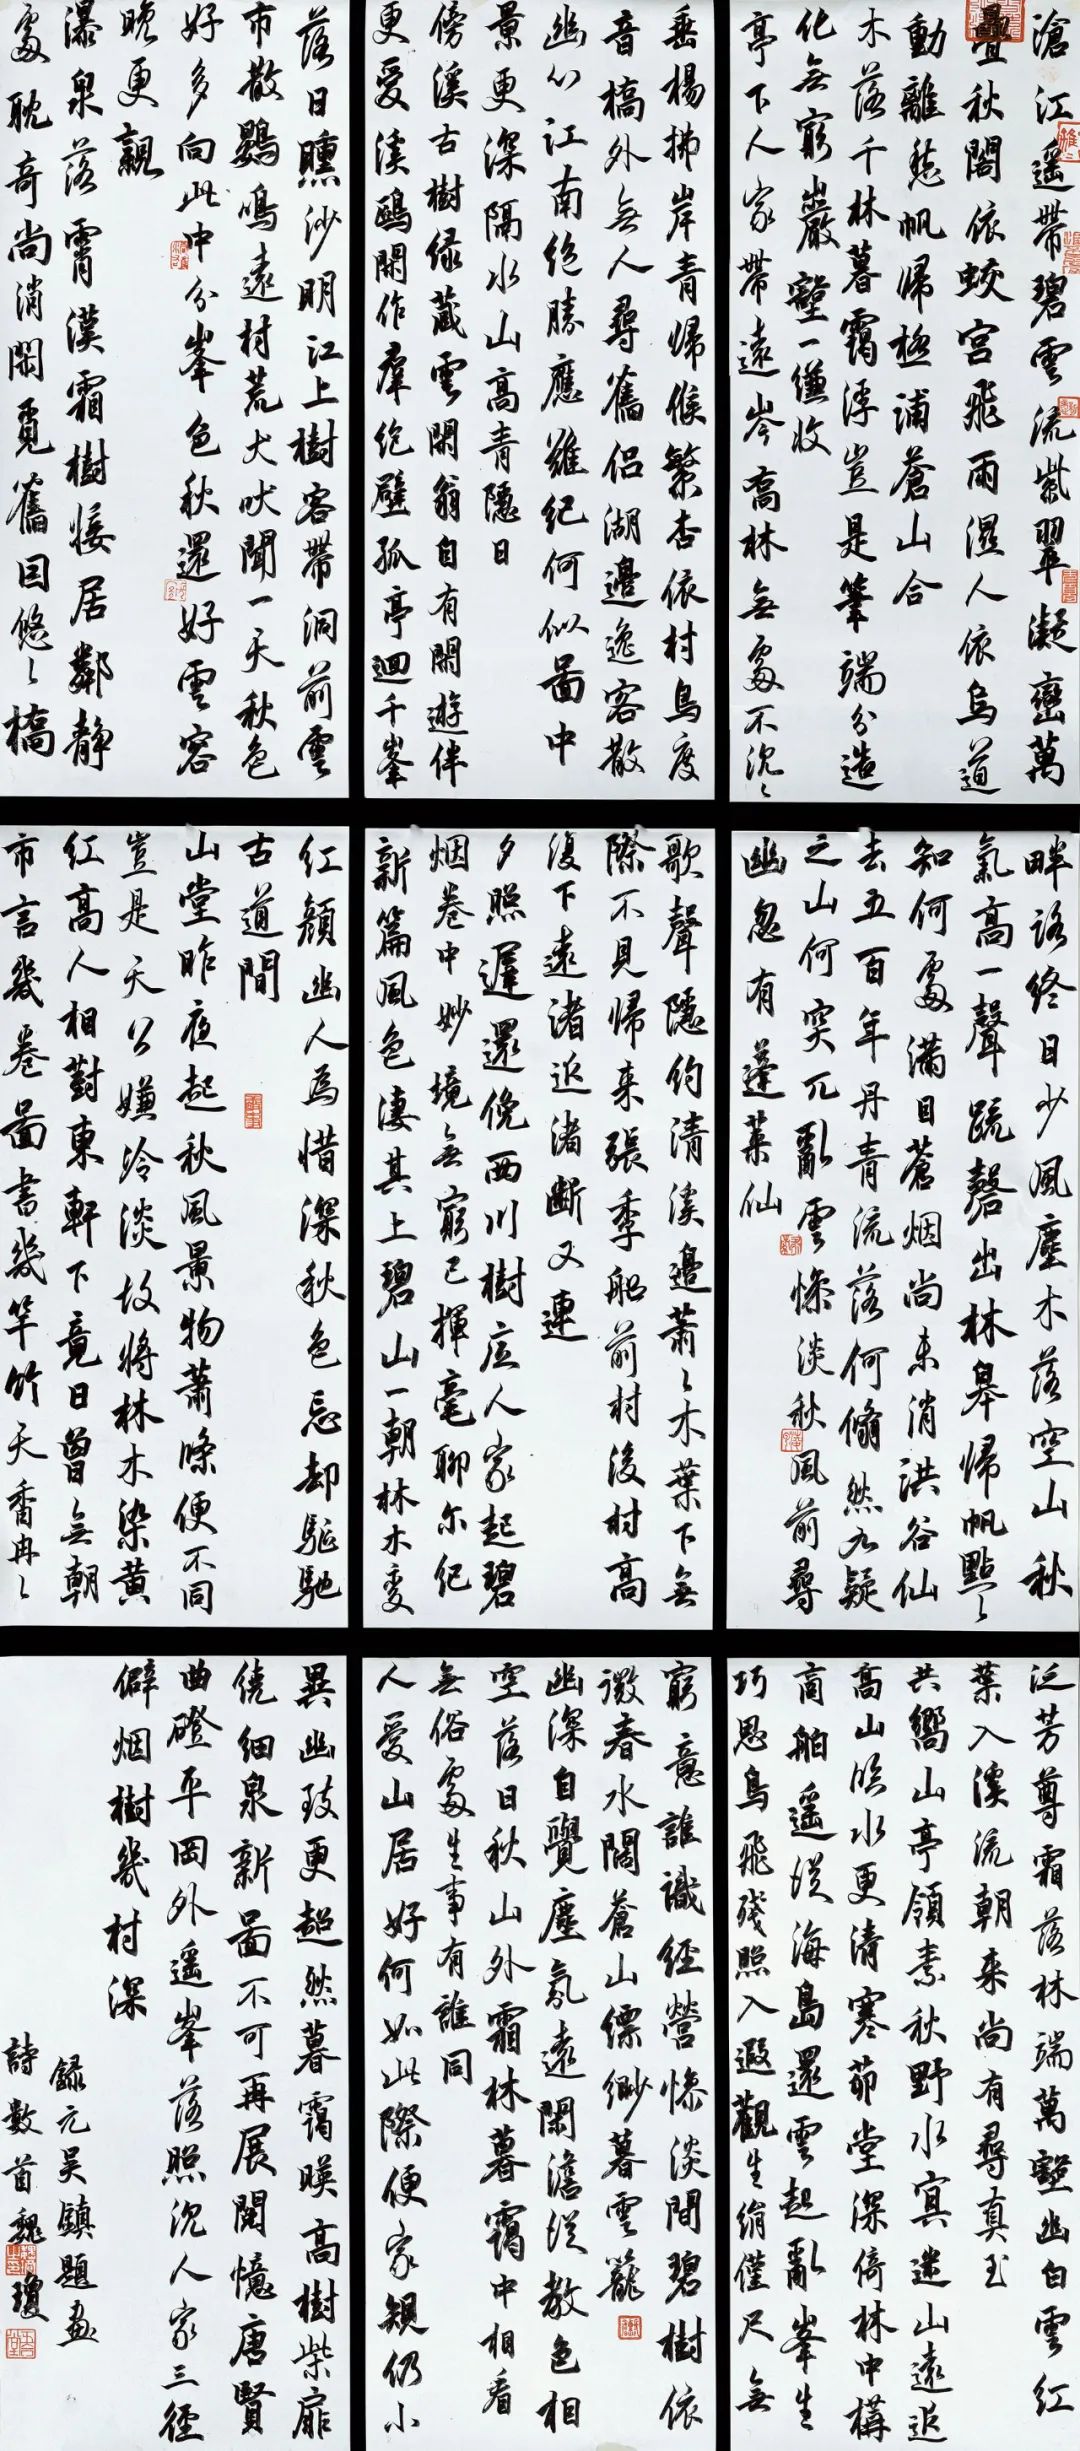 滄江遥帶碧雲流紫翠凝巒萬
疊秋閣依蛟宫飛雨濕人依烏道
動離愁帆歸極浦蒼山合
木落千林暮靄浮豈是筆端分造
化無窮巖壑一縑收
亭下人家帶遠岑喬林無處不沉沉
垂楊拂岸青歸候繁杏依村鳥度
音橋外無人尋舊侣湖邊逸客散
幽心江南絶勝應難紀何似圖中
景更深隔水山高青隱日
傍溪古樹緑藏雲閑翁自有閑遊伴
更愛溪鷗閑作羣絶壁孤亭迴千峯
落日曛沙明江上樹客帶洞前雲
市散鸚鳴遠村荒犬吠聞一天秋色
好多向此中分峯色秋還好雲容
晚更親
瀑泉落霄漢霜樹接居鄰静
處耽奇尚消閑覓舊因悠悠橋
畔路終日少風塵木落空山秋
氣高一聲疏磬出林皋歸帆點點
知何處滿目蒼烟尚未消洪谷仙
去五百年丹青流落何翛然九疑
之山何突兀亂雲慘淡秋風前尋
幽忽有蓬萊仙
歌聲隱約清溪邊蕭蕭木葉下無
際不見歸来張季船前村後村高
復下遠渚近渚斷又連
夕照遲還俛西川樹底人家起碧
烟卷中妙境無窮已揮毫聊尔紀
新篇風色凄其上碧山一朝林木變
紅顔幽人為惜深秋色忘却驅馳
古道間
山堂昨夜起秋風景物蕭條便不同
豈是天公嫌冷淡故將林木染黄
紅高人相對東軒下竟日曾無朝
市言幾卷圖書幾竿竹天香冉冉
泛芳尊霜落林端萬壑幽白雲紅
葉入溪流朝来尚有尋真至
共嚮山亭領素秋野水冥迷山遠近
高山照水更清寒茆堂深倚林中構
商舶遥從海島還雲起亂峯生
巧思鳥飛殘照入遐觀生綃僅尺無
窮意誰識經營慘淡間碧樹依
微春水闊蒼山縹緲暮雲籠
幽深自覺塵氛遠閑澹從教色相
空落日秋山外霜林暮靄中相看
無俗處生事有誰同
人愛山居好何如此際便家規仍小
異幽致更超然暮靄暎高樹柴扉
繞細泉新圖不可再展閱憶唐賢
曲磴平岡外遥峯落照沉人家三徑
僻烟樹幾村深
録元吴鎮題畫
詩數首魏瓊